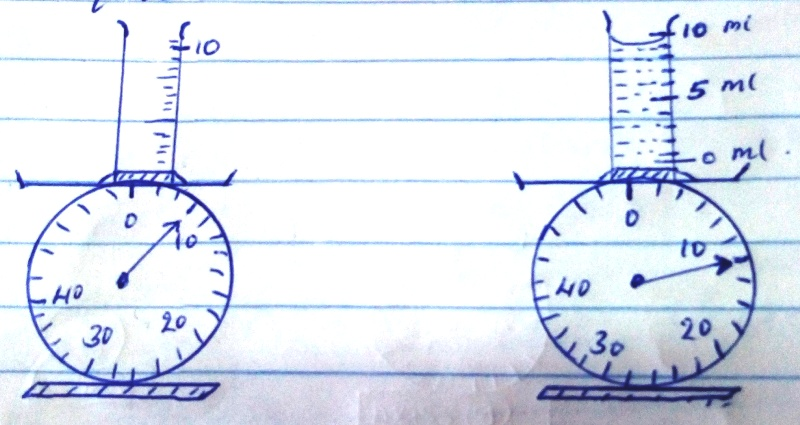 10
0
10
20
30
40
10 ml
5 ml
0 ml.
0
10
20
30
40